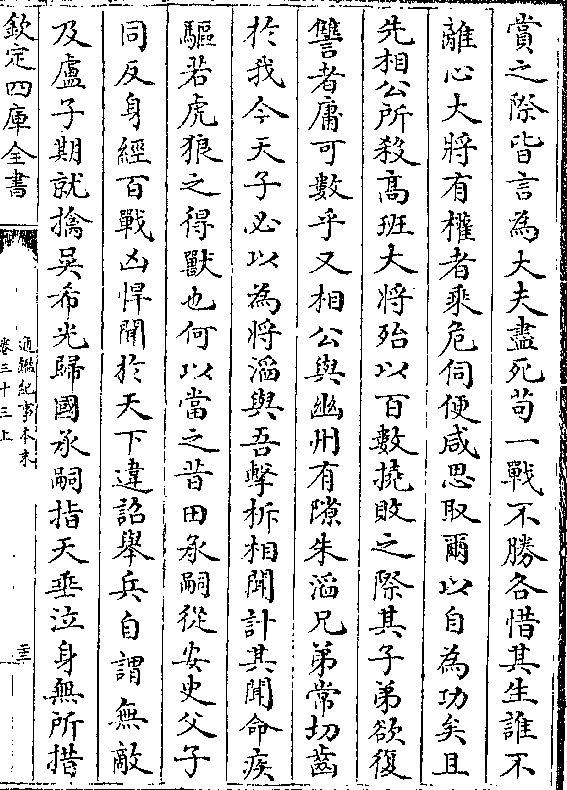 賞之際皆言為大夫盡死苟一戰不勝各惜其生誰不
離心大將有權者乘危伺便咸思取爾以自為功矣且
先相公所殺髙班大将殆以百數撓敗之際其子弟欲復
讐者庸可數乎又相公與幽州有隙朱滔兄弟常切齒
於我今天子必以為將滔與吾擊柝相聞計其聞命疾
驅若虎狼之得獸也何以當之昔田承嗣從安史父子
同反身經百戰凶悍聞於天下違詔舉兵自謂無敵
及盧子期就擒吳希光歸國承嗣指天垂泣身無所措
欽定四庫全書
通鑑紀事本末
卷三十三上